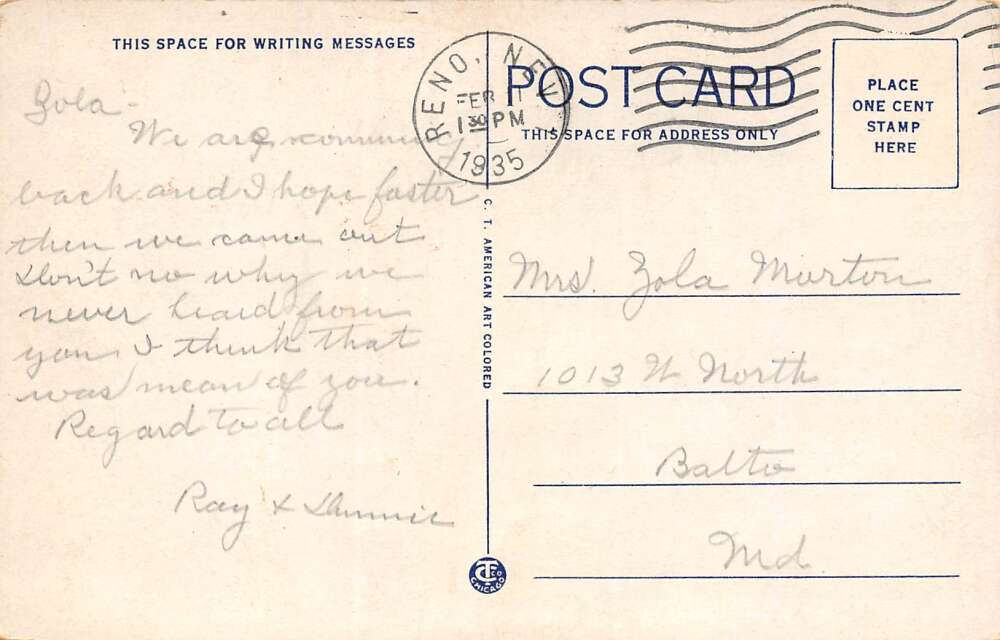 THIS SPACE FOR WRITING MESSAGES
Zola -
We are comming
back and I hope faster
then we came out
Don't no why we
never heard from
you I think that
was mean of you.
Regard to all
Ray &
RENO, NEV
FEB 1
1 30 PM
1935
POST CARD
THIS SPACE FOR ADDRESS ONLY
PLACE
ONE CENT
STAMP
HERE
C. T. AMERICAN ART COLORED
Mrs. Zola Morton
1013 W North
Balto
Md.
CHICAGO